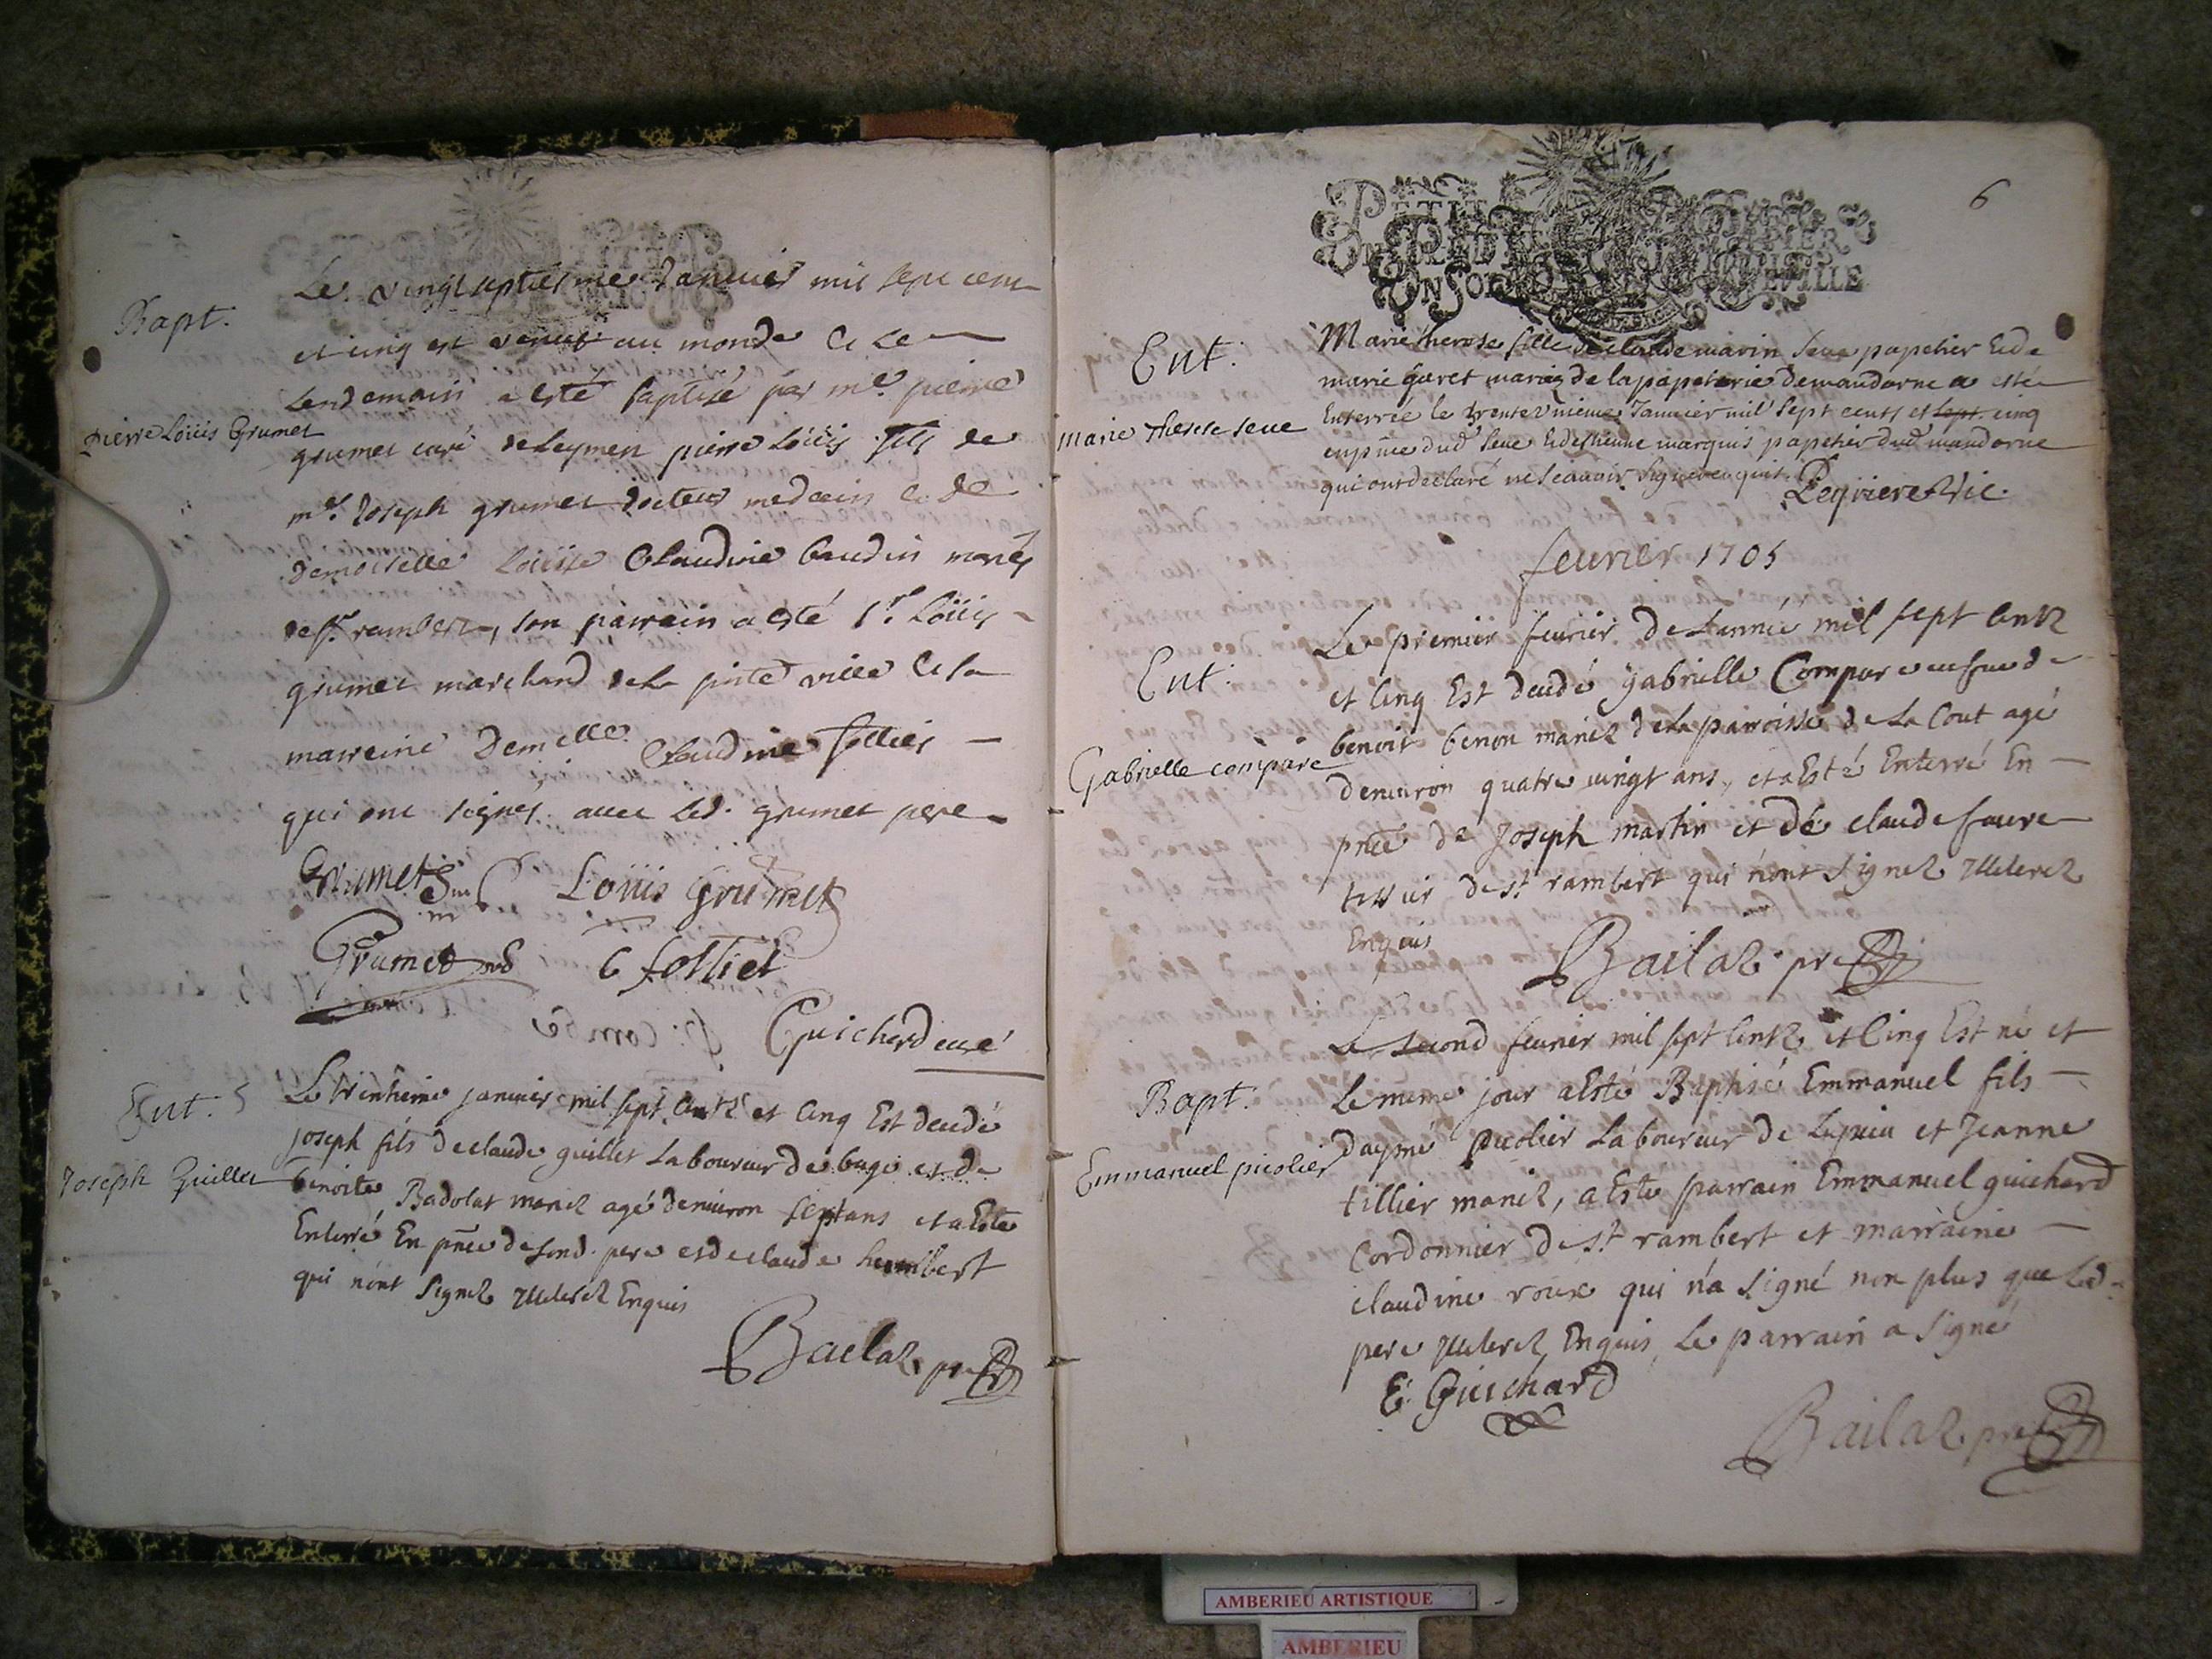 Bapt.
Le vingt septiesme Janvier mil sept cent
et cinq est venu au monde et le
lendemain a esté baptisé par mre. pierre
pierre Loüis Grumet
grumet curé de Leymen pierre Loüis fils de
mre. Joseph grumet docteur medecin et de
demoiselle Loüise Claudine baudin mariés
de st. rambert, son parrein a esté sr. Loüis
grumet marchand de la ditte ville et la
marreine Demelle. Claudine follier
qui ont signés avec led. grumet pere
Grumet Louis Grumet
Grumet C folliet
Guichard curé
Ent. 5
Le trentieme janvier mil sept centz et cinq Est decedé
joseph fils de claude guillet Laboureur de buge et de
Joseph Guillet
benoite Badolat mariez agé denviron sept ans et a Esté
Enterré En pnce de sond. pere et de claude humbert
qui n'ont Signez Illiterez Enquis
Bailaz pre
6
Ent.
Marie therese fille de claude marin seve papetier et de
marie garet mariez de la papeterie de mandorne a esté
marie therese seve
Enterrée le trentevnieme Janvier mil sept cents et sept cinq
en pnce dud. seve et destienne marquis papetier dud. mandorne
qui ont declaré ne scavoir signer enquit.
Leqviere Vic.
fevrier 1705
Ent.
Le premier fevrier de L'année mil sept centz
et cinq Est decedé gabrielle Compare veufve de
Gabrielle compare
benoit benon mariez de la parroisse de La Cout agé
denviron quatre vingt ans, et a Esté Enterré En
pnce de Joseph martin et de claude favre
tissier de st rambert qui n'ont signez Illiterez
Enquis
Bailaz pre
Le second fevrier mil sept centz et Cinq Est né et
Bapt.
Le meme jour a Esté Baptisé Emmanuel fils
Emmanuel picolier
daymé picolier Laboureur de Lupieu et Jeanne
tillier mariez, a Esté parrain Emmanuel guichard
Cordonnier de st rambert et marraine
claudine roux qui n'a signé non plus que Led.
pere Illiterez Enquis, Le parrain a signé
E. Guichard
Bailaz pre
AMBERIEU ARTISTIQUE
AMBERIEU